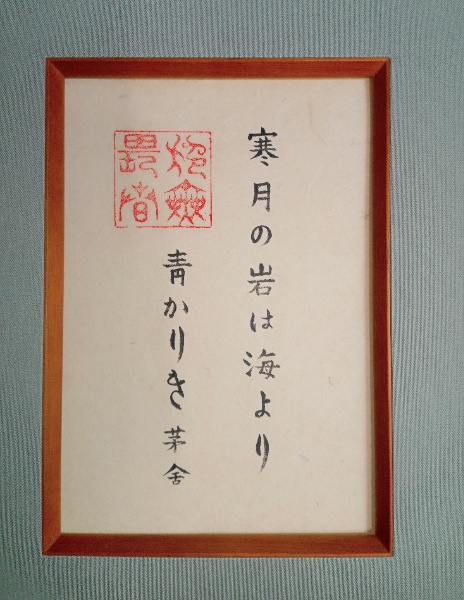 寒月の岩は海より
青かりき 茅舎